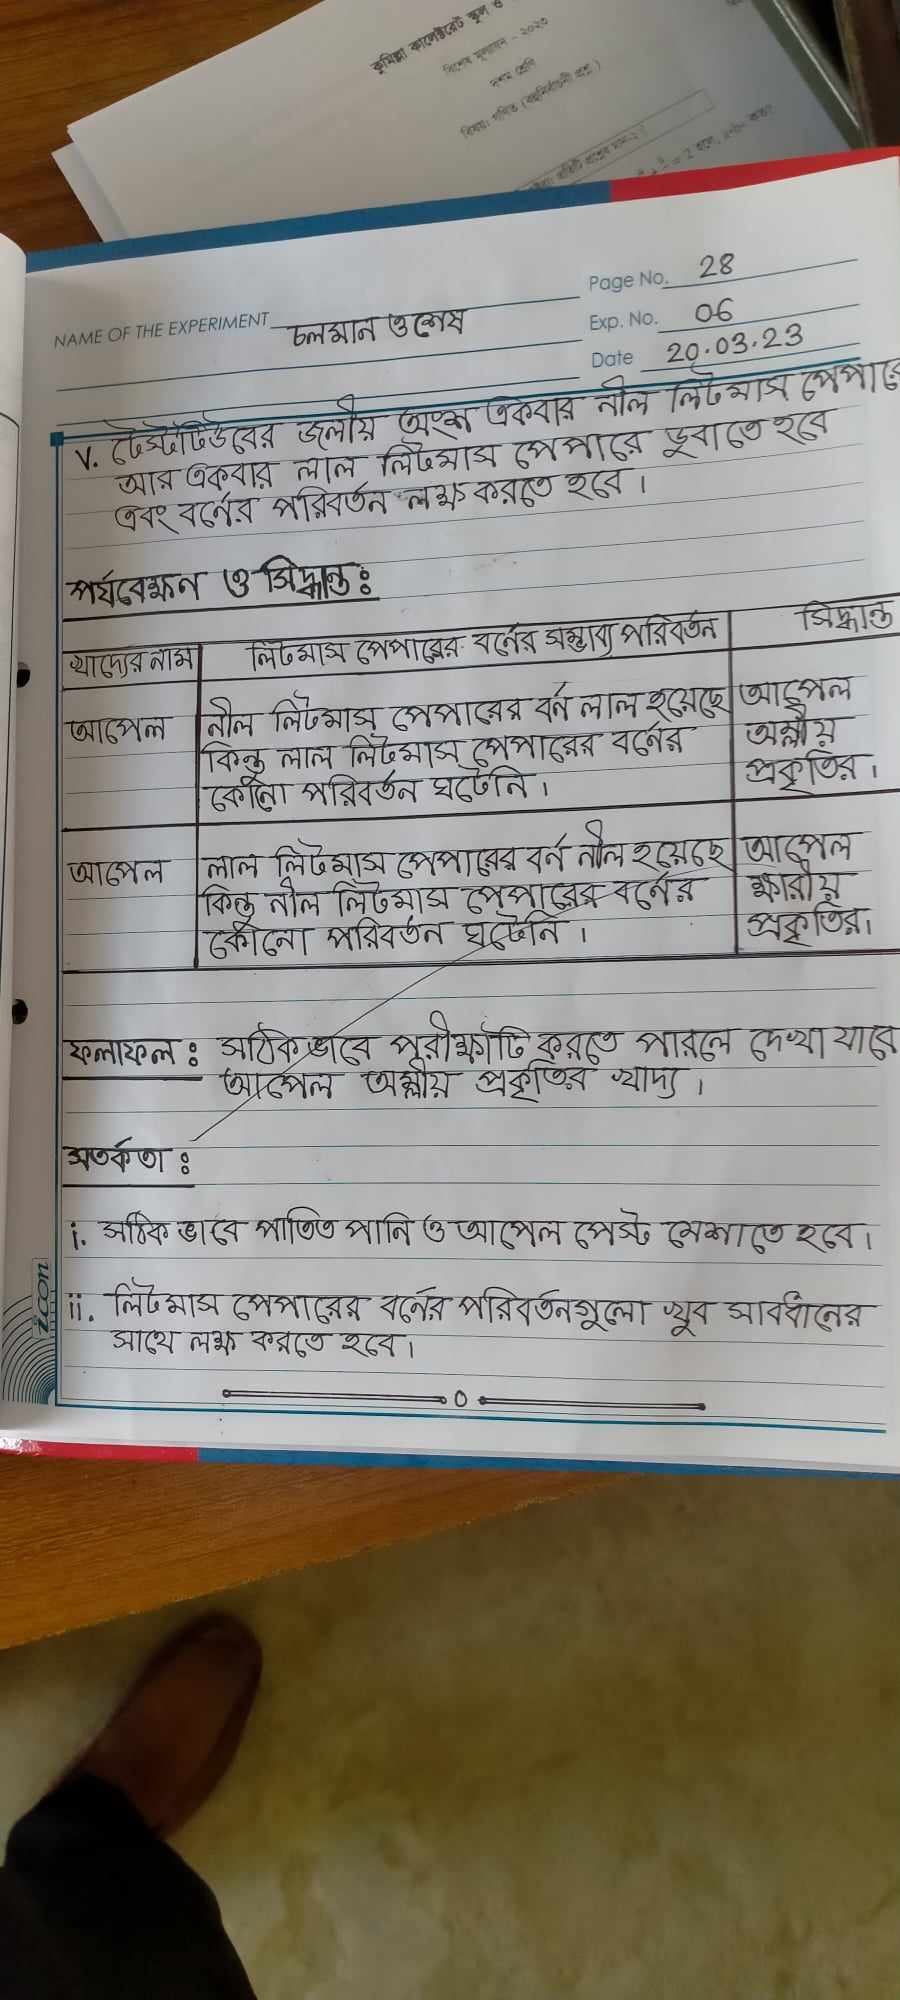 কুমিল্লা কালেক্টরেট স্কুল ও
বিশেষ মূল্যায়ন - ২০২৩
দশম শ্রেণি
বিষয়: গণিত (বহুনির্বাচনী প্রশ্ন)
Page No. 28
NAME OF THE EXPERIMENT চলমান ও শেষ
Exp. No. 06
Date 20.03.23
v. টেস্টটিউবের জলীয় অংশ একবার নীল লিটমাস পেপারে
আর একবার লাল লিটমাস পেপারে ডুবাতে হবে
এবং বর্নের পরিবর্তন লক্ষ করতে হবে।
পর্যবেক্ষন ও সিদ্ধান্ত ঃ
খাদ্যের নাম লিটমাস পেপারের বর্নের সম্ভাব্য পরিবর্তন সিদ্ধান্ত
আপেল নীল লিটমাস পেপারের বর্ন লাল হয়েছে আপেল
কিন্তু লাল লিটমাস পেপারের বর্নের অম্লীয়
কোনো পরিবর্তন ঘটেনি। প্রকৃতির।
আপেল লাল লিটমাস পেপারের বর্ন নীল হয়েছে আপেল
কিন্তু নীল লিটমাস পেপারের বর্নের ক্ষারীয়
কোনো পরিবর্তন ঘটেনি। প্রকৃতির।
ফলাফল ঃ সঠিকভাবে পরীক্ষাটি করতে পারলে দেখা যাবে
আপেল অম্লীয় প্রকৃতির খাদ্য।
সতর্কতা ঃ
i. সঠিক ভাবে পাতিত পানি ও আপেল পেস্ট মেশাতে হবে।
ii. লিটমাস পেপারের বর্নের পরিবর্তনগুলো খুব সাবধানের
সাথে লক্ষ করতে হবে।
icon